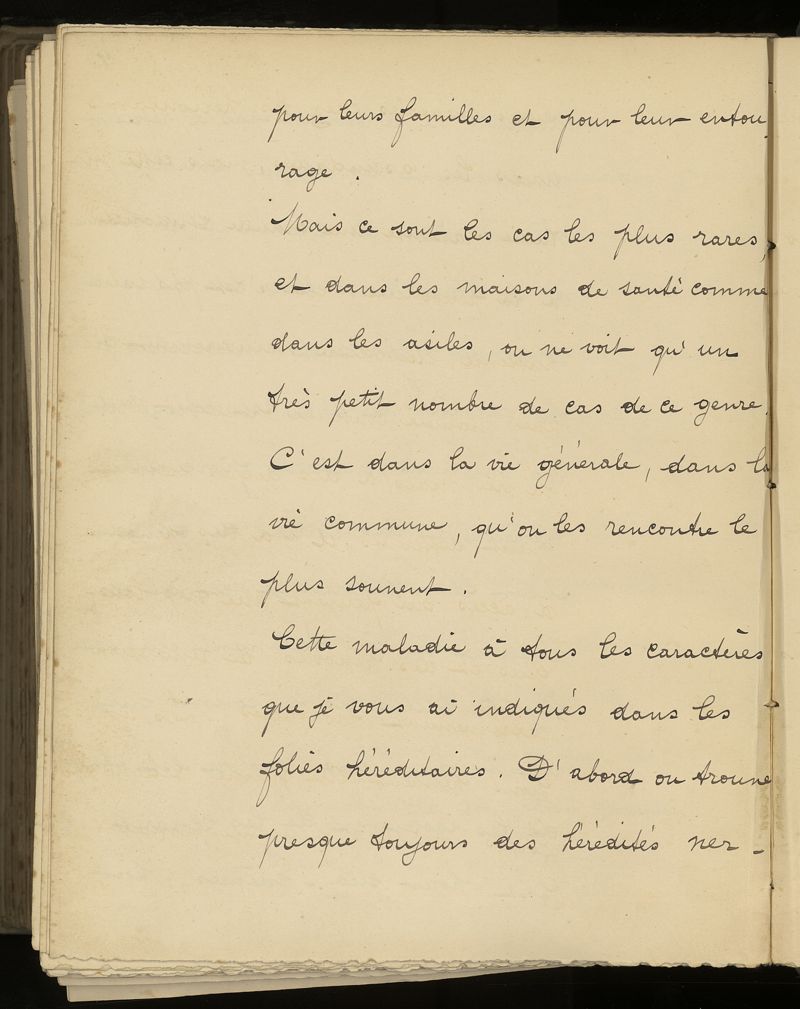 pour leurs familles et pour leur entou
rage .
Mais ce sont les cas les plus rares,
et dans les maisons de santé comme
dans les asiles, on ne voit qu'un
très petit nombre de cas de ce genre.
C'est dans la vie générale, dans la
vie commune, qu'on les rencontre le
plus souvent .
Cette maladie à tous les caractères
que je vous ai indiqués dans les
folies héréditaires. D'abord on trouve
presque toujours des hérédités ner-